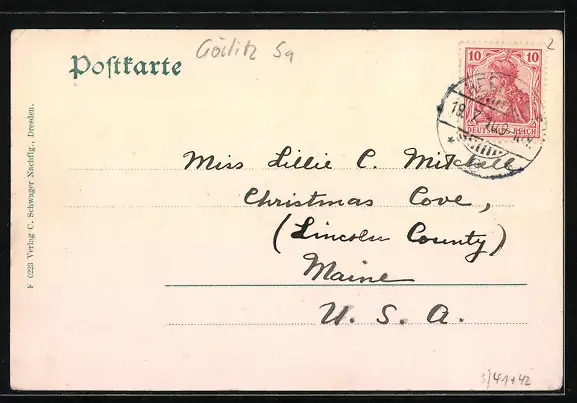 Görlitz Sa
2
Postkarte
10 10
DEUTSCHES REICH
Miss Lillie C. Mitchell
Christmas Cove,
(Lincoln County)
Maine
U. S. A.
F 0223 Verlag C. Schwager Nachflg., Dresden.
3/41+42